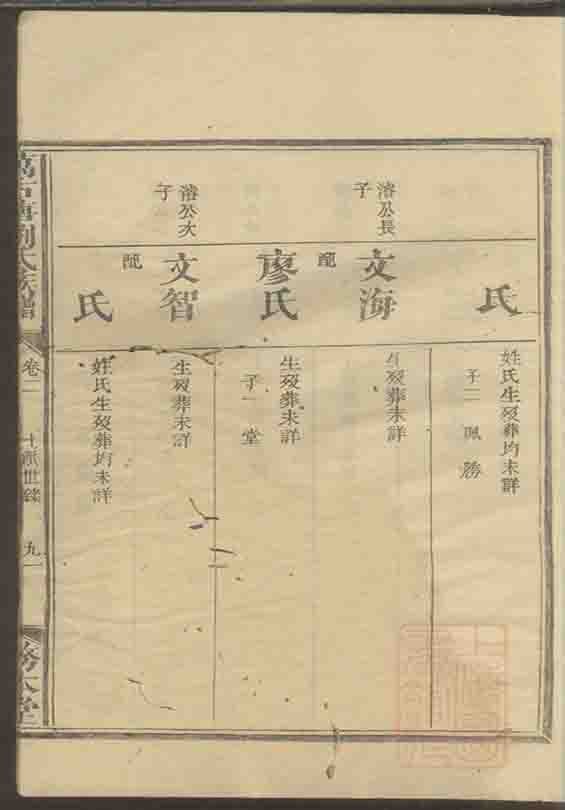 氏
姓氏生歿葬均未詳
子二 珮 勝
濬公長
子
文海
生歿葬未詳
配
廖氏
生歿葬未詳
子一 堂
濬公次
子
文智
生歿葬未詳
配
氏
姓氏生歿葬均未詳
劉氏族譜
卷二
世錄
九一
務本堂